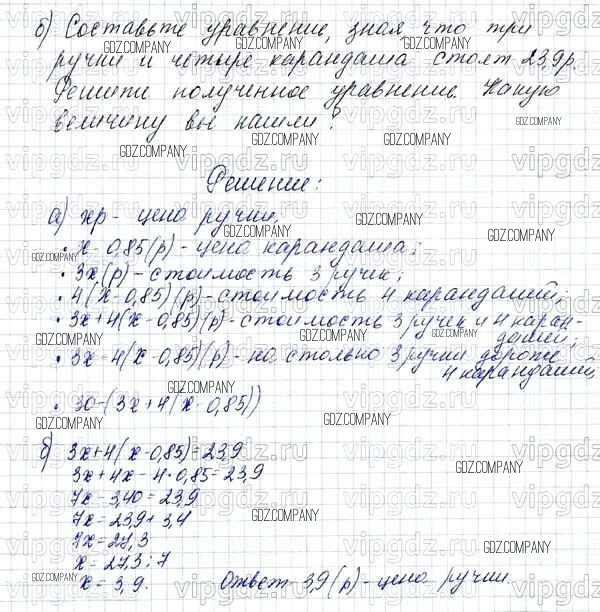 б) Составьте уравнение, зная что три
ручки и четыре карандаша стоят 23,9р.
Решите полученное уравнение. Какую
величину вы нашли?
Решение:
а) хр - цена ручки.
• х - 0,85(р) - цена карандаша;
• 3х(р) - стоимость 3 ручек;
• 4(х-0,85)(р) - стоимость 4 карандашей;
• 3х+4(х-0,85)(р) - стоимость 3 ручек и 4 каран-
дашей;
• 3х-4(х-0,85)(р) - на столько 3 ручки дороже
4 карандашей
• 30-(3х+4(х-0,85))
б) 3х+4(х-0,85)=23,9
3х+4х-4·0,85=23,9
7х-3,40=23,9
7х=23,9+3,4
7х=27,3
х=27,3:7
х=3,9. Ответ 3,9(р) - цена ручки.
GDZ.COMPANY
vipgdz.ru